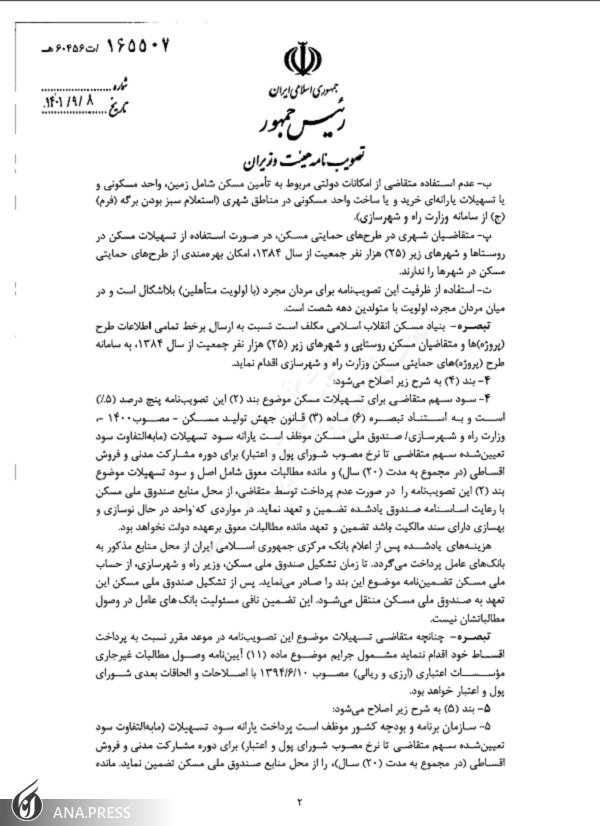 ۱۶۵۵۰۷ /ت۶۰۴۵۶هـ
شماره
۱۴۰۱/۹/۸
تاریخ
جمهوری اسلامی ایران
رئیس جمهور
تصویب نامه هیئت وزیران
ب- عدم استفاده متقاضی از امکانات دولتی مربوط به تأمین مسکن شامل زمین، واحد مسکونی و
یا تسهیلات یارانه‌ای خرید و یا ساخت واحد مسکونی در مناطق شهری (استعلام سبز بودن برگه (فرم)
(ج) از سامانه وزارت راه و شهرسازی).
پ- متقاضیان شهری در طرح‌های حمایتی مسکن، در صورت استفاده از تسهیلات مسکن در
روستاها و شهرهای زیر (۲۵) هزار نفر جمعیت از سال ۱۳۸۴، امکان بهره‌مندی از طرح‌های حمایتی
مسکن در شهرها را ندارند.
ت- استفاده از ظرفیت این تصویب‌نامه برای مردان مجرد (با اولویت متأهلین) بلااشکال است و در
میان مردان مجرد، اولویت با متولدین دهه شصت است.
تبصره- بنیاد مسکن انقلاب اسلامی مکلف است نسبت به ارسال برخط تمامی اطلاعات طرح
(پروژه)ها و متقاضیان مسکن روستایی و شهرهای زیر (۲۵) هزار نفر جمعیت از سال ۱۳۸۴، به سامانه
طرح (پروژه)های حمایتی مسکن وزارت راه و شهرسازی اقدام نماید.
۴- بند (۴) به شرح زیر اصلاح می‌شود:
۴- سود سهم متقاضی برای تسهیلات مسکن موضوع بند (۲) این تصویب‌نامه پنج درصد (۵٪)
است و به استناد تبصره (۶) ماده (۳) قانون جهش تولید مسکن - مصوب۱۴۰۰ -،
وزارت راه و شهرسازی/ صندوق ملی مسکن موظف است یارانه سود تسهیلات (مابه‌التفاوت سود
تعیین‌شده سهم متقاضی تا نرخ مصوب شورای پول و اعتبار) برای دوره مشارکت مدنی و فروش
اقساطی (در مجموع به مدت (۲۰) سال) و مانده مطالبات معوق شامل اصل و سود تسهیلات موضوع
بند (۲) این تصویب‌نامه را در صورت عدم پرداخت توسط متقاضی، از محل منابع صندوق ملی مسکن
با رعایت اساسنامه صندوق یادشده تضمین و تعهد نماید. در مواردی که واحد در حال نوسازی و
بهسازی دارای سند مالکیت باشد تضمین و تعهد مانده مطالبات معوق برعهده دولت نخواهد بود.
هزینه‌های یادشده پس از اعلام بانک مرکزی جمهوری اسلامی ایران از محل منابع مذکور به
بانک‌های عامل پرداخت می‌گردد. تا زمان تشکیل صندوق ملی مسکن، وزیر راه و شهرسازی، از حساب
ملی مسکن تضمین‌نامه موضوع این بند را صادر می‌نماید. پس از تشکیل صندوق ملی مسکن این
تعهد به صندوق ملی مسکن منتقل می‌شود. این تضمین نافی مسئولیت بانک های عامل در وصول
مطالباتشان نیست.
تبصره- چنانچه متقاضی تسهیلات موضوع این تصویب‌نامه در موعد مقرر نسبت به پرداخت
اقساط خود اقدام ننماید مشمول جرایم موضوع ماده (۱۱) آیین‌نامه وصول مطالبات غیرجاری
مؤسسات اعتباری (ارزی و ریالی) مصوب ۱۳۹۴/۶/۱۰ با اصلاحات و الحاقات بعدی شورای
پول و اعتبار خواهد بود.
۵- بند (۵) به شرح زیر اصلاح می‌شود:
۵- سازمان برنامه و بودجه کشور موظف است پرداخت یارانه سود تسهیلات (مابه‌التفاوت سود
تعیین‌شده سهم متقاضی تا نرخ مصوب شورای پول و اعتبار) برای دوره مشارکت مدنی و فروش
اقساطی (در مجموع به مدت (۲۰) سال)، را از محل منابع صندوق ملی مسکن تضمین نماید. مانده
۲
ANA.PRESS